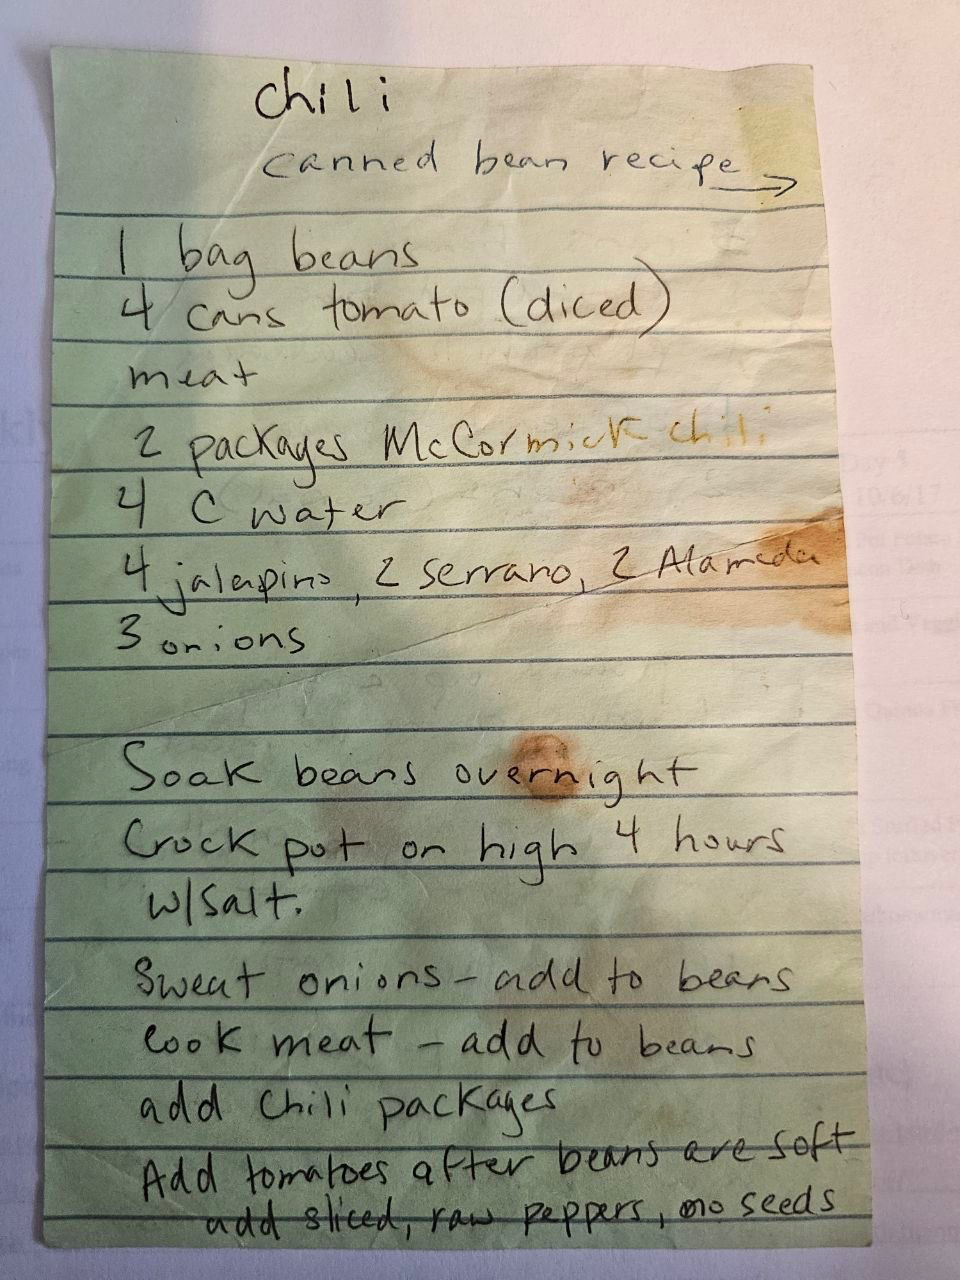 Chili
canned bean recipe →
1 bag beans
4 cans tomato (diced)
meat
2 packages McCormick chili
4 C water
4 jalapino, 2 serrano, 2 Alameda
3 onions
Soak beans overnight
Crock pot on high 4 hours
w/salt.
Sweat onions - add to beans
Cook meat - add to beans
add chili packages
Add tomatoes after beans are soft
add sliced, raw peppers, no seeds